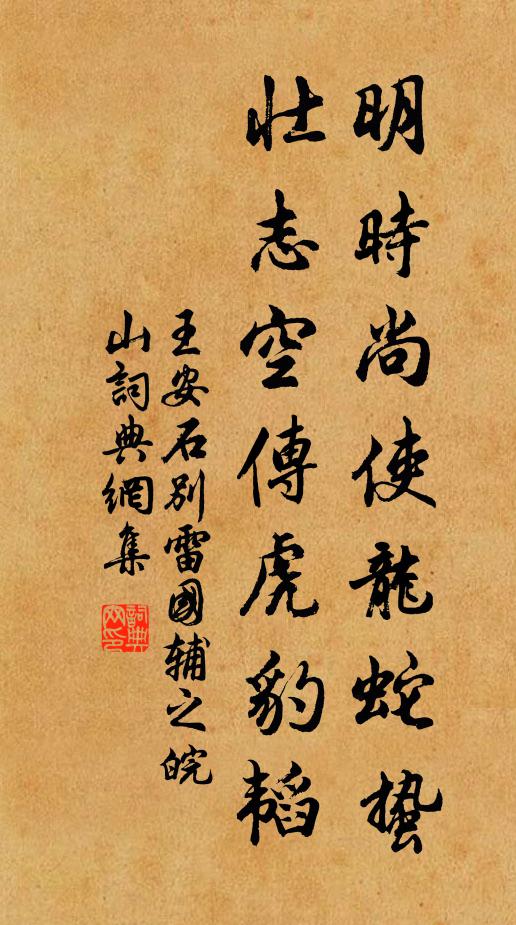 明時尚使龍蛇蟄
壯志空傳虎豹韜
王安石別雷國輔之皖
山詞典網集
詞典网印